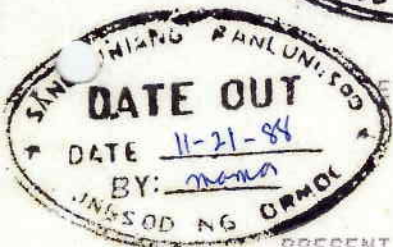 SANGGUNIANG PANLUNGSOD
DATE OUT
DATE 11-21-88
BY:
LUNGSOD NG ORMOC
PRESENT